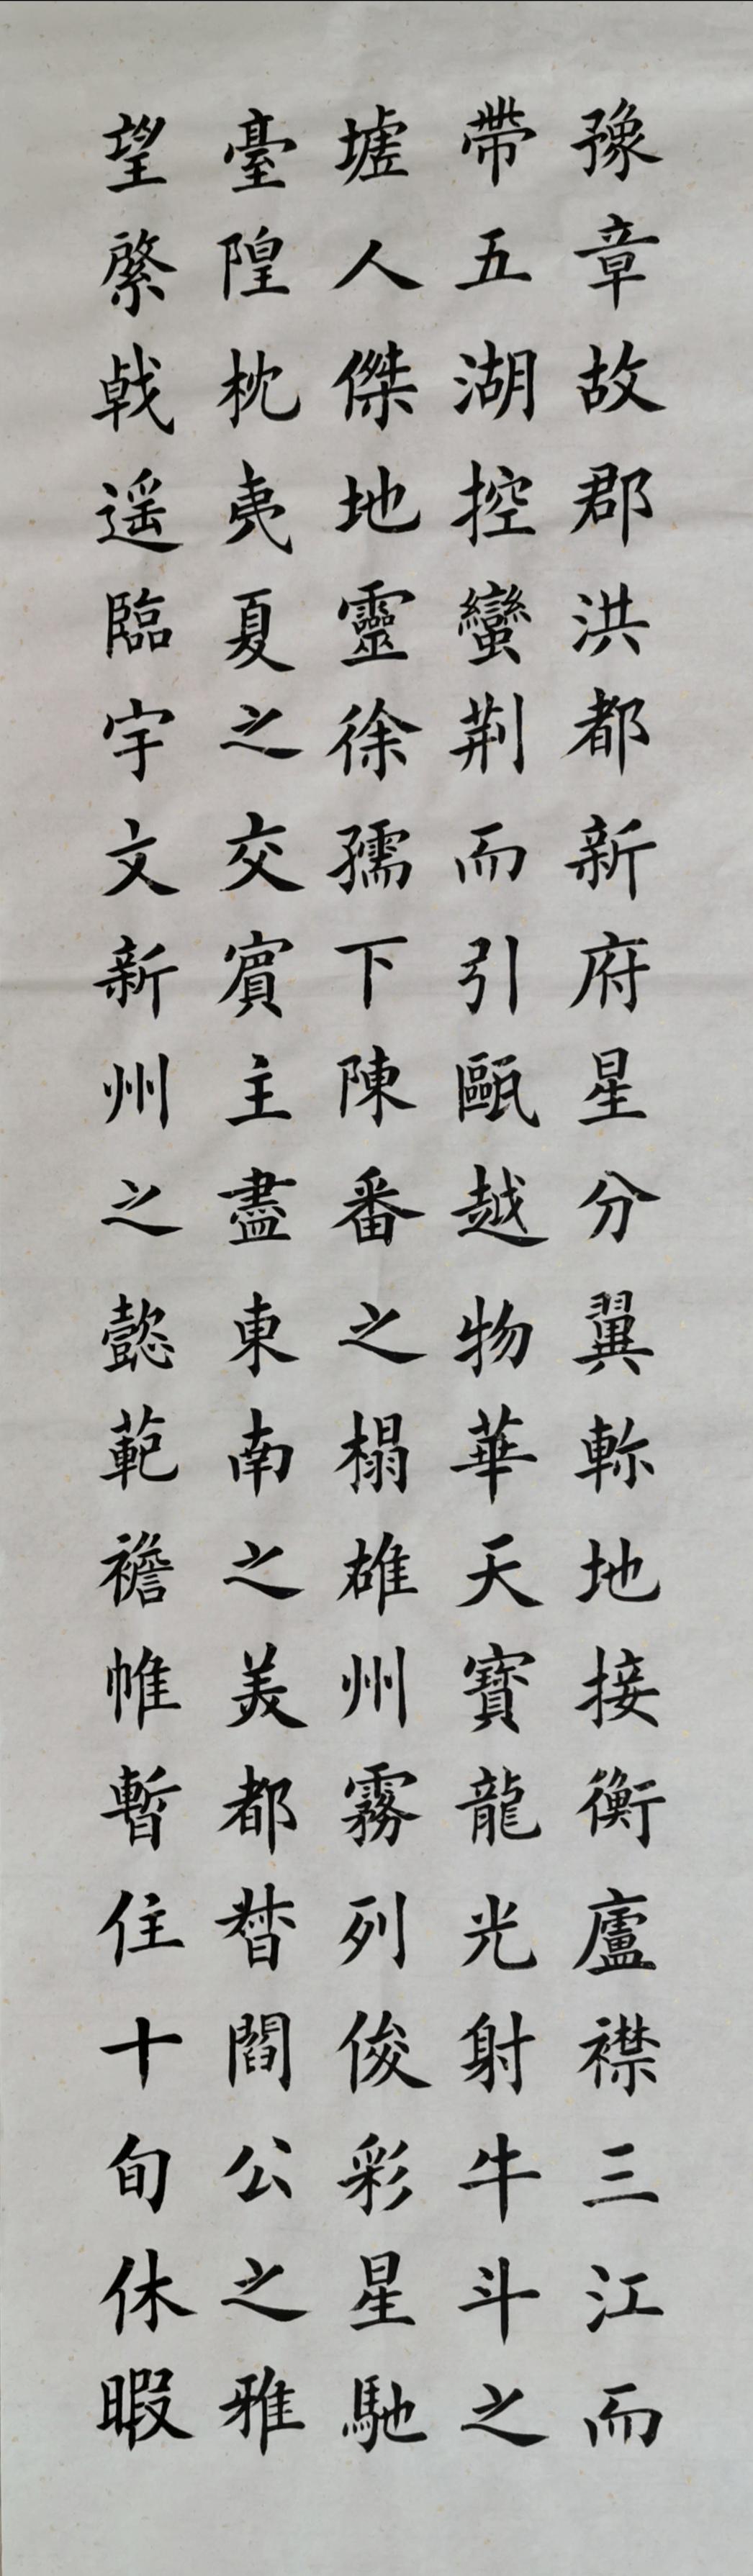 豫章故郡洪都新府星分翼軫地接衡廬襟三江而
帶五湖控蠻荆而引甌越物華天寶龍光射牛斗之
墟人傑地靈徐孺下陳番之榻雄州霧列俊彩星馳
臺隍枕夷夏之交賓主盡東南之美都督閻公之雅
望棨戟遥臨宇文新州之懿範襜帷暫住十旬休暇